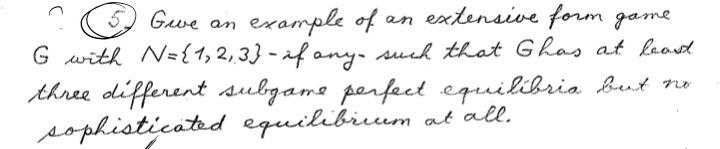 ? 5) Give an example of an extensive form game
G with N={1,2,3} - if any - such that G has at least
three different subgame perfect equilibria but no
sophisticated equilibrium at all.